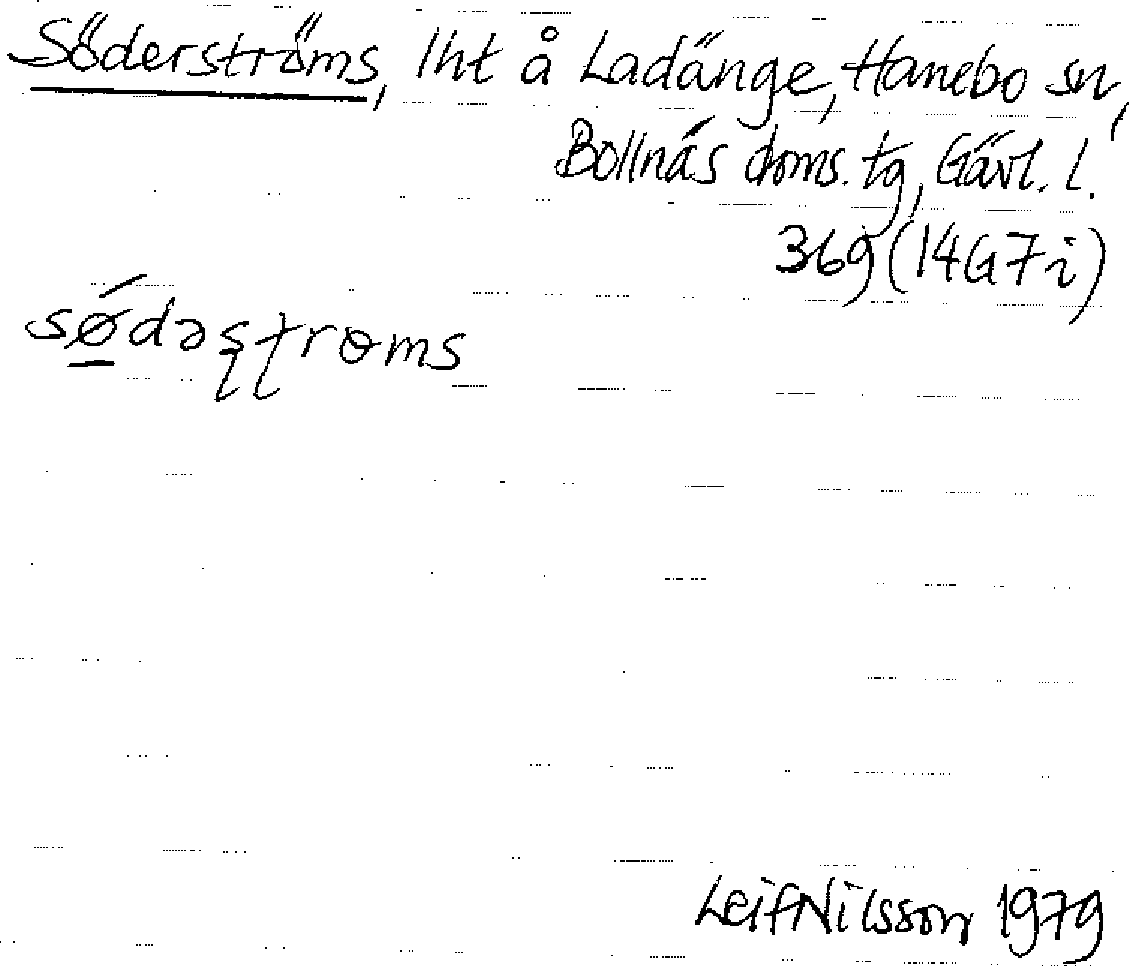 Söderströms, lht å Ladänge, Hanebo sn,
Bollnäs doms. tg, Gävl. l.
36g (14G7i)
sǿ̲dəʂʈrɵms
Leif Nilsson 1979